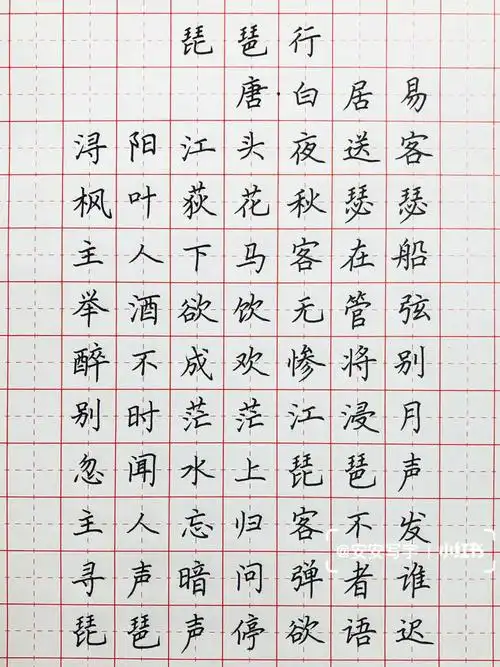 琵琶行
唐·白居易
浔阳江头夜送客
枫叶荻花秋瑟瑟
主人下马客在船
举酒欲饮无管弦
醉不成欢惨将别
别时茫茫江浸月
忽闻水上琵琶声
主人忘归客不发
@安安写字 | 小红书
寻声暗问弹者谁
琵琶声停欲语迟